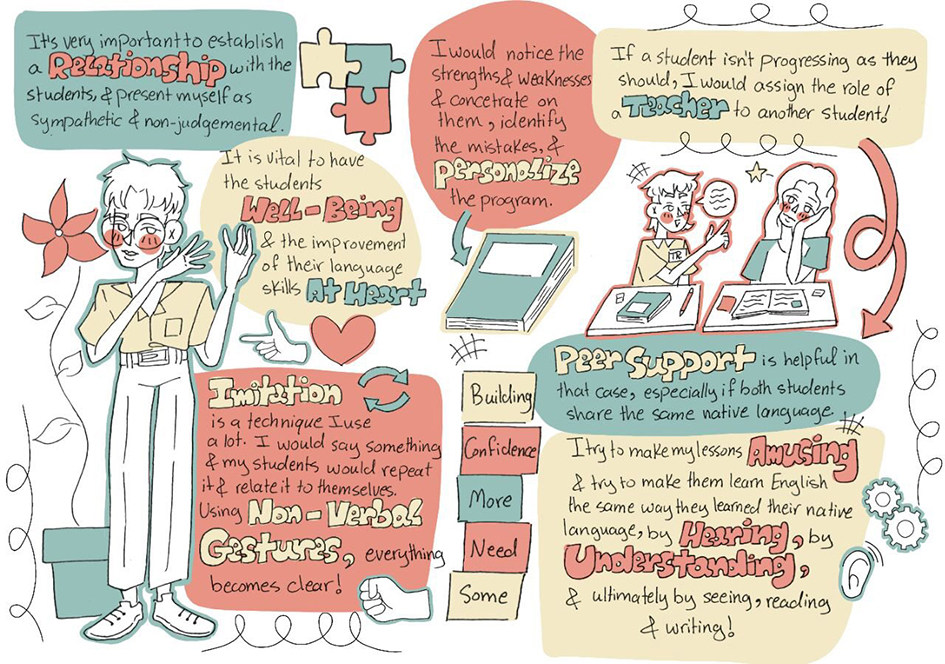 It's very important to establish
a Relationship with the
students, & present myself as
sympathetic & non-judgemental.
It is vital to have
the students
Well-Being
& the improvement
of their language
skills At Heart
Imitation
is a technique I use
a lot. I would say something
& my students would repeat
it & relate it to themselves.
Using Non-Verbal
Gestures, everything
becomes clear!
I would notice the
strengths & weaknesses
& concetrate on
them, identify
the mistakes, &
Personalize
the program.
If a student isn't progressing as they
should, I would assign the role of
a Teacher to another student!
TR
Peer Support is helpful in
that case, especially if both students
share the same native language.
Building
Confidence
More
Need
Some
I try to make my lessons Amusing
& try to make them learn English
the same way they learned their native
language, by Hearing, by
Understanding,
& ultimately by seeing, reading
& writing!